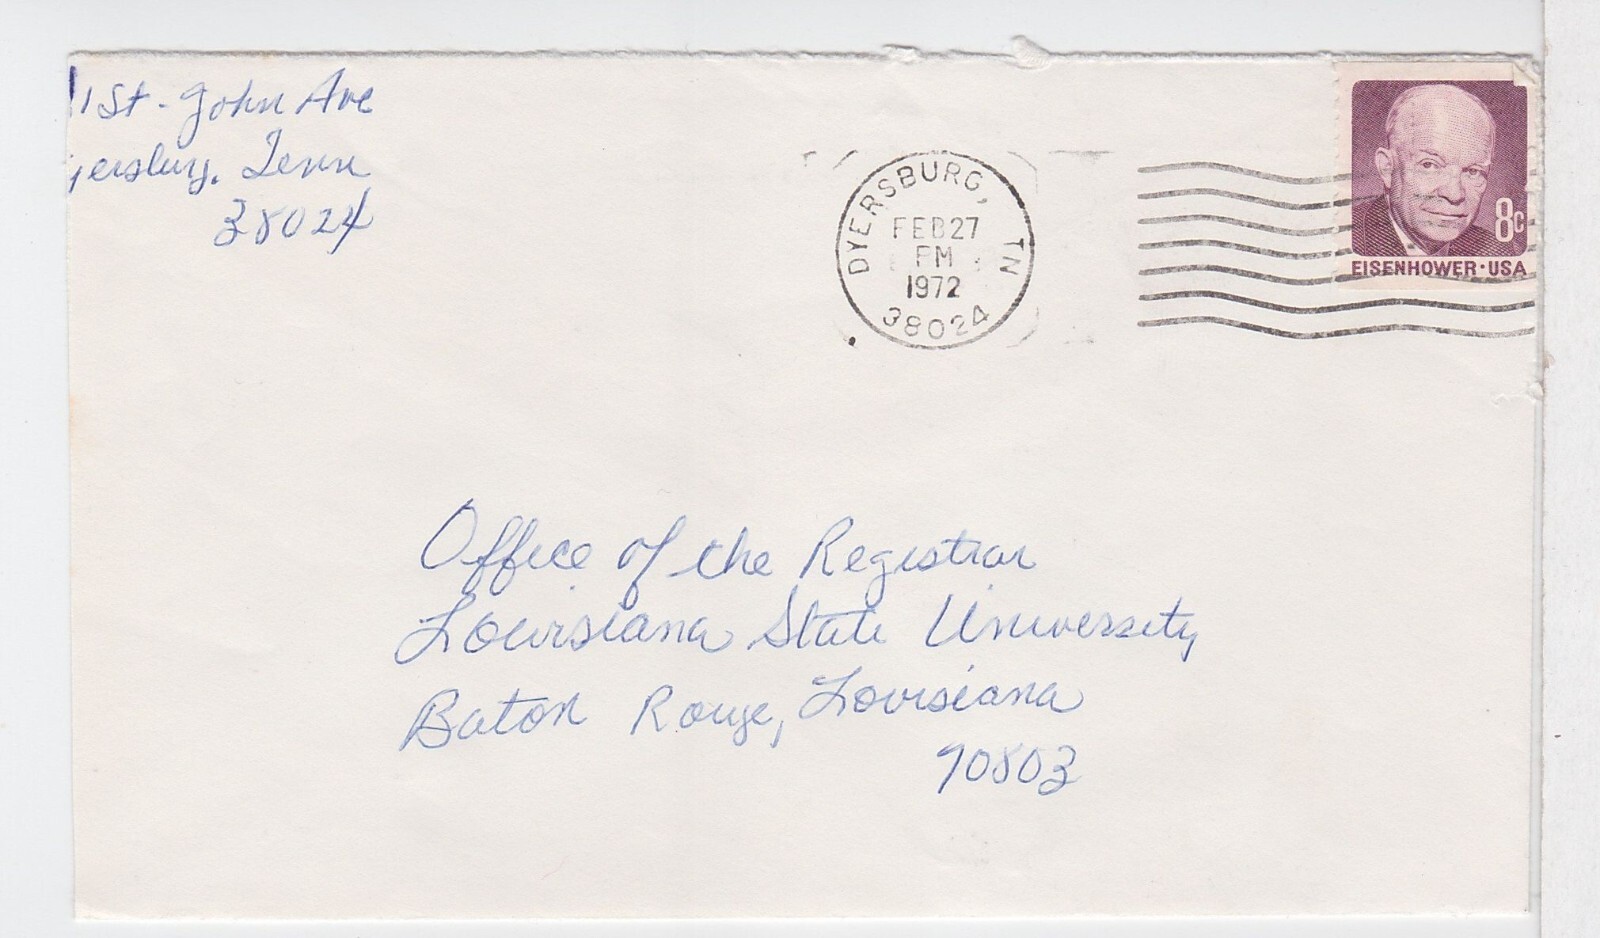 1 St. John Ave
yersburg, Tenn
38024
DYERSBURG, TN
FEB 27
PM
1972
38024
8c
EISENHOWER · USA
Office of the Registrar
Louisiana State University
Baton Rouge, Louisiana
70803